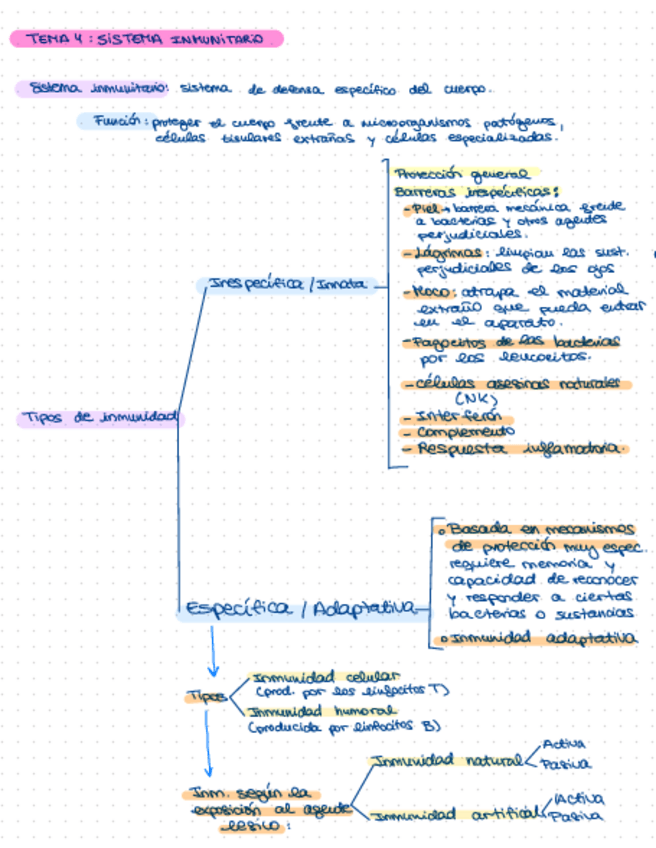 TEMA 4: SISTEMA INMUNITARIO
Sistema inmunitario: sistema de defensa específico del cuerpo.
Función: proteger el cuerpo frente a microorganismos patógenos,
células tisulares extrañas y células especializadas.
Protección general
Barreras inespecíficas:
- Piel → barrera mecánica frente
a bacterias y otros agentes
perjudiciales.
- Lágrimas: limpian las sust.
perjudiciales de los ojos
Inespecífica / Innata
- Moco: atrapa el material
extraño que pueda entrar
en el aparato.
- Fagocitos de las bacterias
por los leucocitos.
- células asesinas naturales
(NK)
Tipos de inmunidad
- Interferón
- Complemento
- Respuesta inflamatoria.
o Basada en mecanismos
de protección muy espec.
requiere memoria y
capacidad de reconocer
y responder a ciertas
bacterias o sustancias
Específica / Adaptativa
o Inmunidad adaptativa
Inmunidad celular
(prod. por los linfocitos T)
Tipos
Inmunidad humoral
(producida por linfocitos B)
Inmunidad natural
Activa
Pasiva
Inm. según la
exposición al agente
lesivo:
Inmunidad artificial
Activa
Pasiva